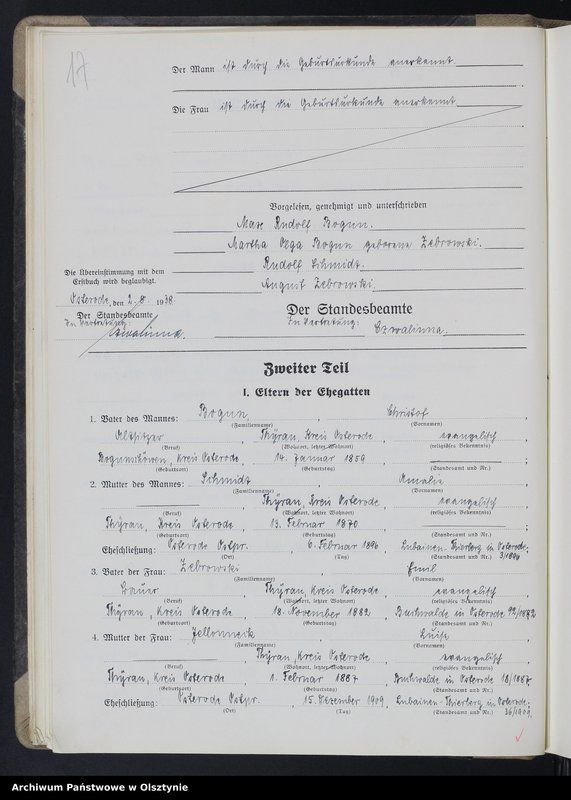 17
Der Mann ist durch die Geburtsurkunde anerkannt
Die Frau ist durch die Geburtsurkunde anerkannt
Vorgelesen, genehmigt und unterschrieben
Max Rudolf Bogun.
Martha Olga Bogun geborene Zebrowski.
Rudolf Schmidt
August Zebrowski
Die Übereinstimmung mit dem
Erstbuch wird beglaubigt.
Osterode, den 2. 8. 1938
Der Standesbeamte
In Vertretung:
Czwalinna.
Der Standesbeamte
In Vertretung:
Czwalinna.
Zweiter Teil
I. Eltern der Ehegatten
1. Vater des Mannes: Bogun, Christof,
(Familienname) (Vornamen)
Altsitzer, Thyrau, Kreis Osterode, evangelisch
(Beruf) (Wohnort, letzter Wohnort) (religiöses Bekenntnis)
Kreis Osterode, 14. Januar 1859
(Geburtsort) (Geburtstag) (Standesamt und Nr.)
2. Mutter des Mannes: Schmidt, Amalie
(Familienname) (Vornamen)
Thyrau, Kreis Osterode, evangelisch
(Beruf) (Wohnort, letzter Wohnort) (religiöses Bekenntnis)
Thyrau, Kreis Osterode, 13. Februar 1870
(Geburtsort) (Geburtstag) (Standesamt und Nr.)
Eheschließung: Osterode Ostpr., 6. Februar 1896, Lubainen-Thierberg in Osterode
3/1896
(Ort) (Tag) (Standesamt und Nr.)
3. Vater der Frau: Zebrowski, Emil
(Familienname) (Vornamen)
Bauer, Thyrau, Kreis Osterode, evangelisch
(Beruf) (Wohnort, letzter Wohnort) (religiöses Bekenntnis)
Thyrau, Kreis Osterode, 18. November 1882, Buchwalde in Osterode 92/1882
(Geburtsort) (Geburtstag) (Standesamt und Nr.)
4. Mutter der Frau: Luise
(Familienname) (Vornamen)
Thyrau, Kreis Osterode, evangelisch
(Beruf) (Wohnort, letzter Wohnort) (religiöses Bekenntnis)
Thyrau, Kreis Osterode, 1. Februar 1887, Buchwalde in Osterode 18/1887
(Geburtsort) (Geburtstag) (Standesamt und Nr.)
Eheschließung: Osterode Ostpr., 15. Dezember 1909, Lubainen-Thierberg in Osterode
36/1909
(Ort) (Tag) (Standesamt und Nr.)
Archiwum Państwowe w Olsztynie